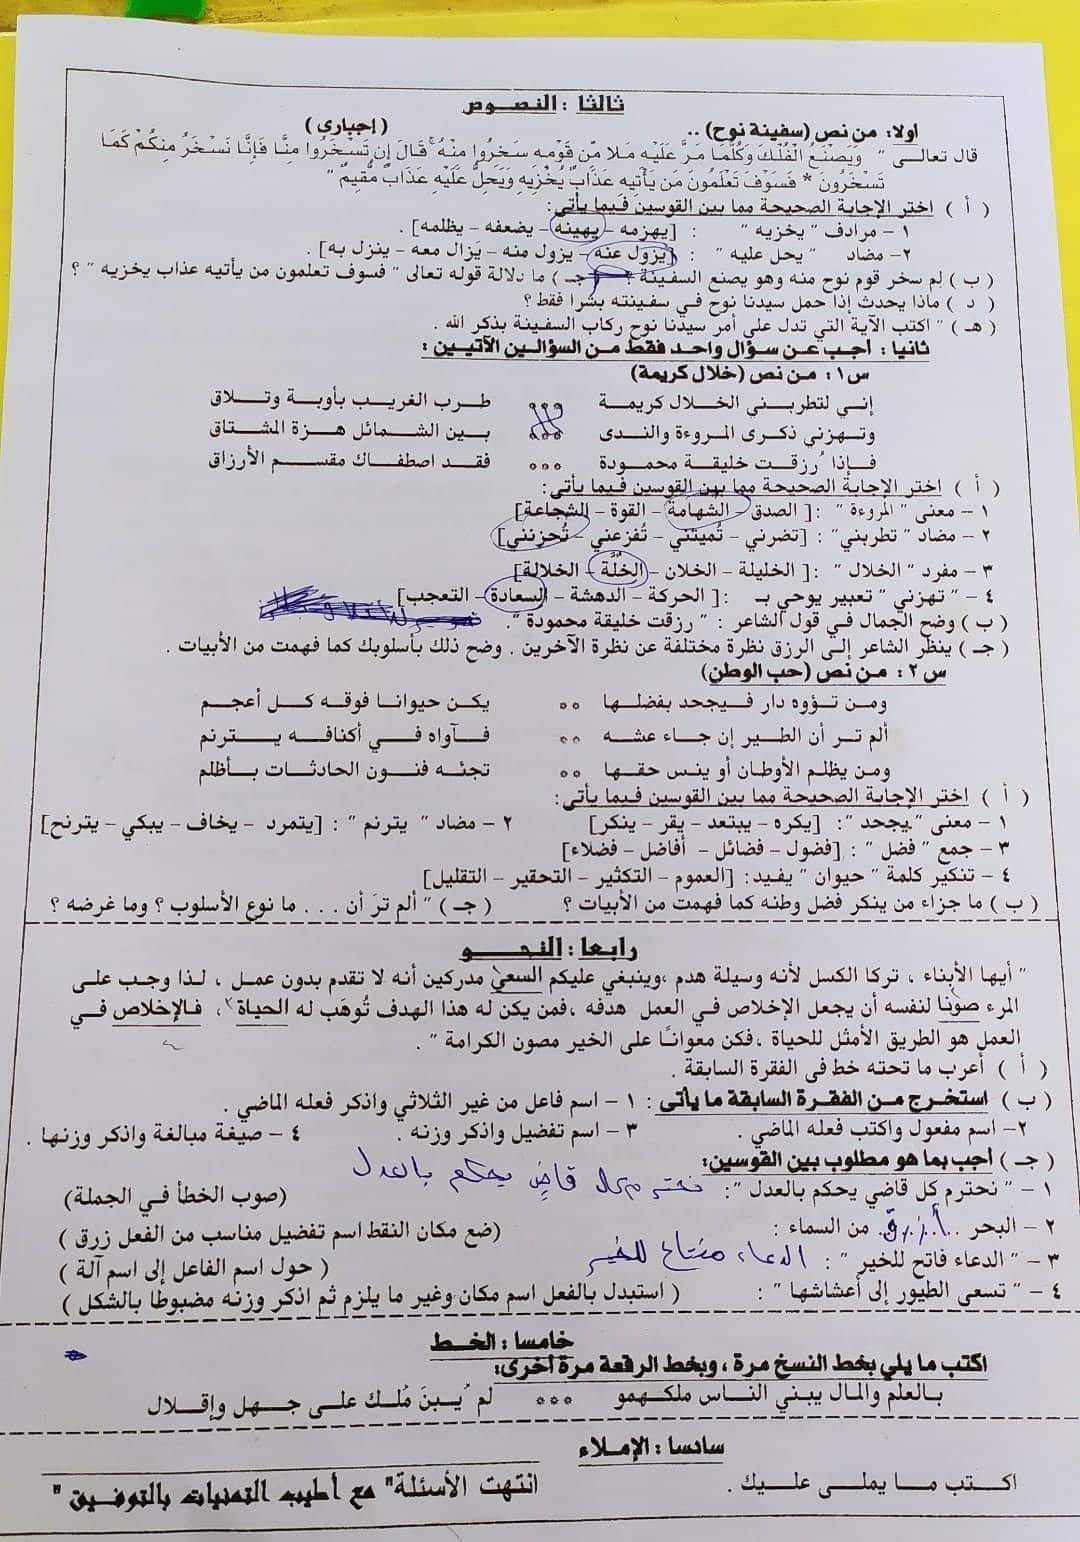 ثالثا : النصوص
اولا: من نص (سفينة نوح) .. ( إجبارى )
قال تعالى " وَيَصْنَعُ الْفُلْكَ وَكُلَّمَا مَرَّ عَلَيْهِ مَلَأٌ مِّن قَوْمِهِ سَخِرُوا مِنْهُ ۚ قَالَ إِن تَسْخَرُوا مِنَّا فَإِنَّا نَسْخَرُ مِنكُمْ كَمَا
تَسْخَرُونَ * فَسَوْفَ تَعْلَمُونَ مَن يَأْتِيهِ عَذَابٌ يُخْزِيهِ وَيَحِلُّ عَلَيْهِ عَذَابٌ مُّقِيمٌ "
( أ ) اختر الإجابة الصحيحة مما بين القوسين فيما يأتى:
١ - مرادف " يخزيه " : [يهزمه - يهينه - يضعفه - يظلمه] .
٢- مضاد " يحل عليه " : [يزول عنه - يزول منه - يَزال معه - ينزل به] .
( ب ) لِم سخر قوم نوح منه وهو يصنع السفينة ؟ ( جـ ) ما دلالة قوله تعالى " فسوف تعلمون من يأتيه عذاب يخزيه " ؟
( د ) ماذا يحدث إذا حمل سيدنا نوح في سفينته بشرا فقط ؟
( هـ ) " اكتب الآية التي تدل على أمر سيدنا نوح ركاب السفينة بذكر الله .
ثانيا : أجب عن سؤال واحد فقط من السؤالين الآتيين :
س١ : من نص (خلال كريمة)
إني لتطربني الخلال كريمة °°° طرب الغريب بأوبة وتلاق
وتهزني ذكرى المروءة والندى °°° بين الشمائل هزة المشتاق
فإذا رُزقت خليقة محمودة °°° فقد اصطفاك مقسم الأرزاق
( أ ) اختر الإجابة الصحيحة مما بين القوسين فيما يأتى:
١ - معنى " المروءة " :[ الصدق - الشهامة - القوة - الشجاعة]
٢ - مضاد " تطربني" : [تضرني - تُميتني - تُفزعني - تُحزنني]
٣ - مفرد " الخلال " :[ الخليلة - الخلان - الخلَّة - الخلالة]
٤ - " تهزني " تعبير يوحي بـ :[ الحركة - الدهشة - السعادة - التعجب]
( ب ) وضح الجمال في قول الشاعر : " رزقت خليقة محمودة ".
( جـ ) ينظر الشاعر إلى الرزق نظرة مختلفة عن نظرة الآخرين . وضح ذلك بأسلوبك كما فهمت من الأبيات .
س٢ : من نص (حب الوطن)
ومن تؤوه دار فيجحد بفضلها °° يكن حيوانا فوقه كل أعجم
ألم تر أن الطير إن جاء عشه °° فآواه في أكنافه يترنم
ومن يظلم الأوطان أو ينس حقها °° تجئه فنون الحادثات بأظلم
( أ ) اختر الإجابة الصحيحة مما بين القوسين فيما يأتى:
١ - معنى "يجحد": [يكره - يبتعد - يقر - ينكر] ٢ - مضاد " يترنم " : [يتمرد - يخاف - يبكي - يترنح]
٣ - جمع " فضل " : [فضول - فضائل - أفاضل - فضلاء]
٤ - تنكير كلمة " حيوان " يفيد: [العموم - التكثير - التحقير - التقليل]
( ب ) ما جزاء من ينكر فضل وطنه كما فهمت من الأبيات ؟ ( جـ ) " ألم ترَ أن . . . ما نوع الأسلوب ؟ وما غرضه ؟
رابعا : النحو
" أيها الأبناء ، تركا الكسل لأنه وسيلة هدم ،وينبغي عليكم السعي مدركين أنه لا تقدم بدون عمل ، لذا وجب على
المرء صونا لنفسه أن يجعل الإخلاص في العمل هدفه ،فمن يكن له هذا الهدف تُوهَب له الحياة ، فالإخلاص في
العمل هو الطريق الأمثل للحياة ،فكن معوانًا على الخير مصون الكرامة " .
( أ ) أعرب ما تحته خط فى الفقرة السابقة .
( ب ) استخرج من الفقرة السابقة ما يأتى : ١ - اسم فاعل من غير الثلاثي واذكر فعله الماضي .
٢- اسم مفعول واكتب فعله الماضي . ٣ - اسم تفضيل واذكر وزنه . ٤ - صيغة مبالغة واذكر وزنها .
( جـ ) أجب بما هو مطلوب بين القوسين:
١ - " نحترم كل قاضي يحكم بالعدل ": نحترم كل قاضٍ يحكم بالعدل (صوب الخطأ في الجملة)
٢ - البحر .. أزرق .. من السماء : (ضع مكان النقط اسم تفضيل مناسب من الفعل زرق )
٣ - " الدعاء فاتح للخير " : الدعاء مفتاح للخير ( حول اسم الفاعل إلى اسم آلة )
٤ - " تسعى الطيور إلى أعشاشها " : ( استبدل بالفعل اسم مكان وغير ما يلزم ثم اذكر وزنه مضبوطا بالشكل )
خامسا : الخط
اكتب ما يلي بخط النسخ مرة ، وبخط الرقعة مرة أخرى:
بالعلم والمال يبني الناس ملكهمو °°° لم يُبنَ مُلك على جهل وإقلال
سادسا : الإملاء
اكتب ما يملى عليك .
انتهت الأسئلة" مع أطيب التمنيات بالتوفيق "